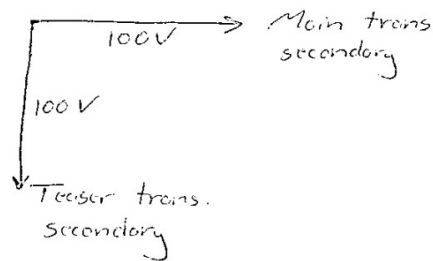 100V
Main trans
secondary
100V
Teaser trans.
secondary